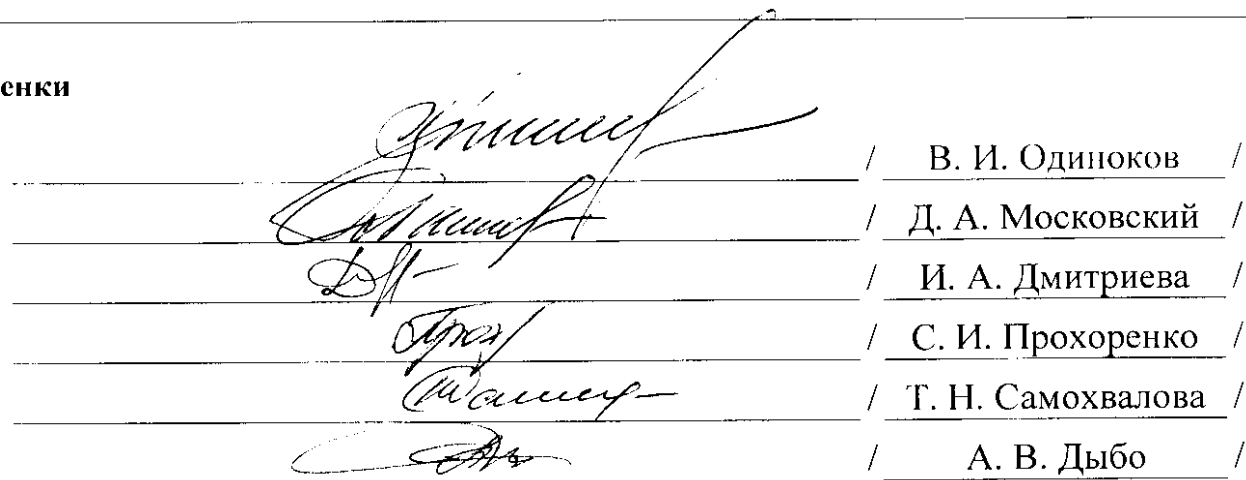 енки
/ В. И. Одиноков /
/ Д. А. Московский /
/ И. А. Дмитриева /
/ С. И. Прохоренко /
/ Т. Н. Самохвалова /
/ А. В. Дыбо /